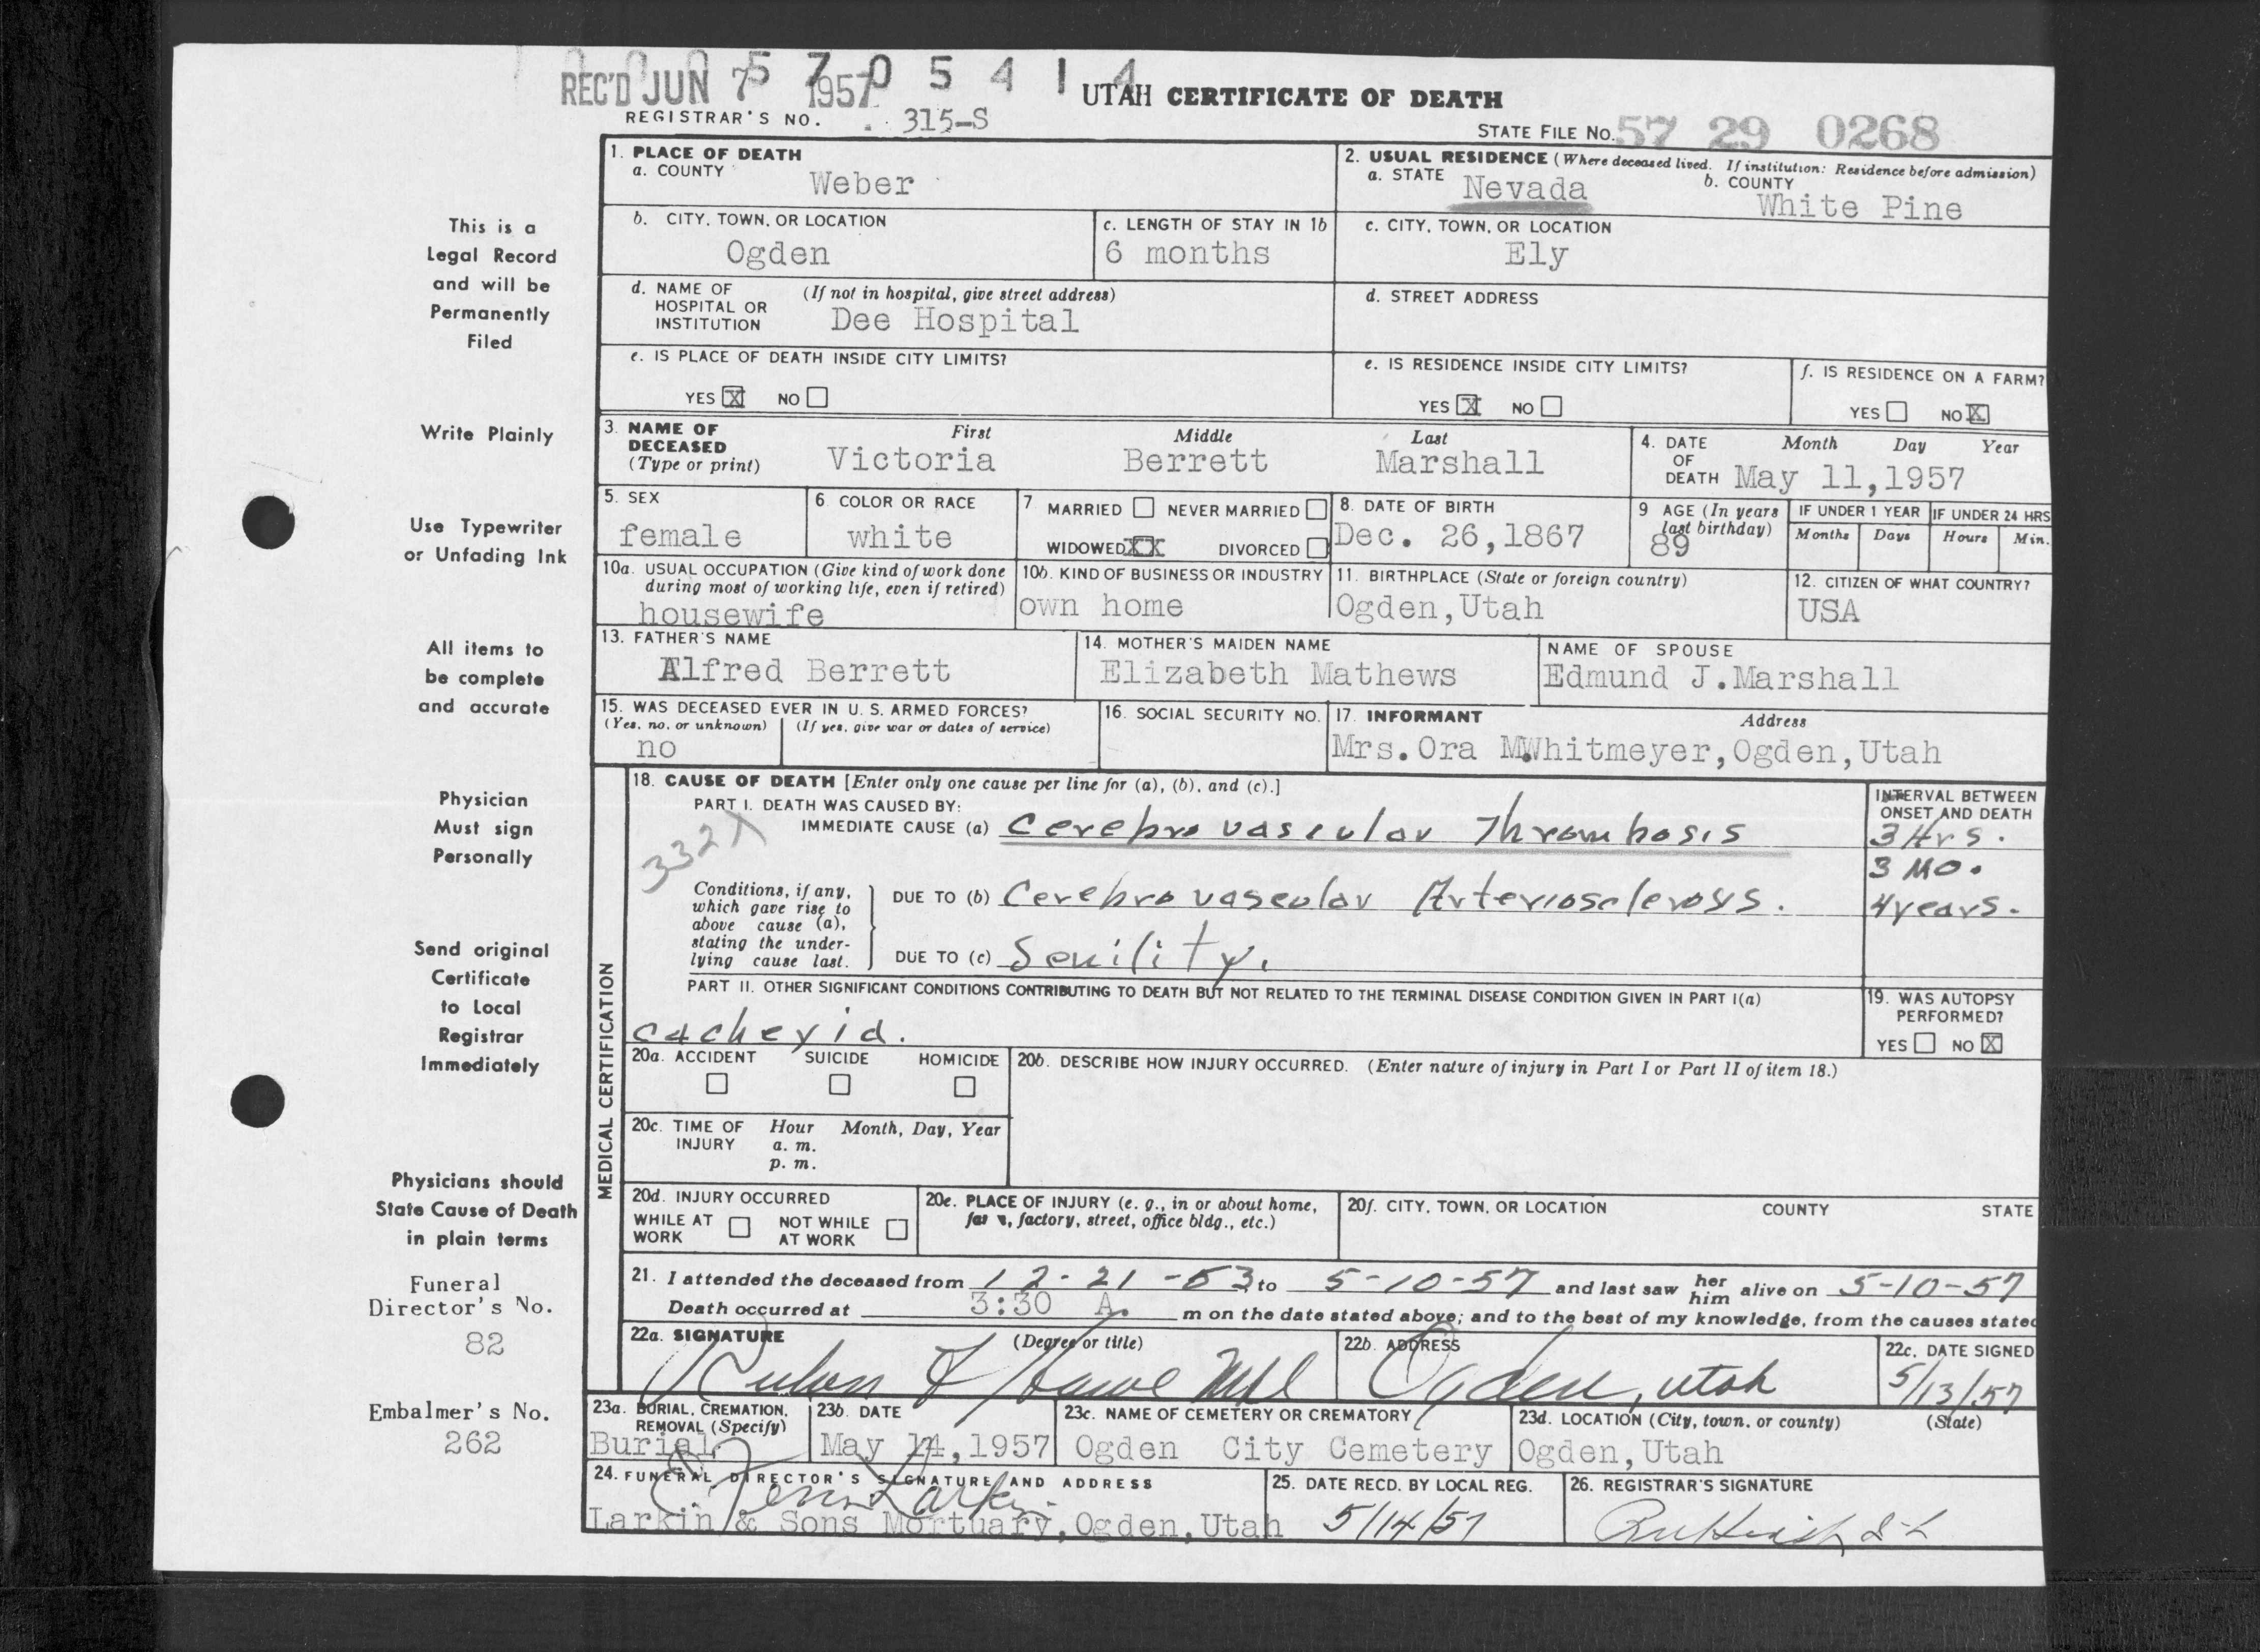 REC'D JUN 7 1957
5 7 0 5 4 1 4
UTAH CERTIFICATE OF DEATH
REGISTRAR'S NO. 315-S
STATE FILE NO. 57 29 0268
1. PLACE OF DEATH
a. COUNTY
Weber
2. USUAL RESIDENCE (Where deceased lived. If institution: Residence before admission)
a. STATE Nevada
b. COUNTY
White Pine
b. CITY, TOWN, OR LOCATION
Ogden
c. LENGTH OF STAY IN 1b
6 months
c. CITY, TOWN, OR LOCATION
Ely
d. NAME OF HOSPITAL OR INSTITUTION (If not in hospital, give street address)
Dee Hospital
d. STREET ADDRESS
e. IS PLACE OF DEATH INSIDE CITY LIMITS?
YES X NO
e. IS RESIDENCE INSIDE CITY LIMITS?
YES X NO
f. IS RESIDENCE ON A FARM?
YES NO X
3. NAME OF DECEASED (Type or print)
First Middle Last
Victoria Berrett Marshall
4. DATE OF DEATH Month Day Year
May 11,1957
5. SEX
female
6. COLOR OR RACE
white
7 MARRIED NEVER MARRIED
WIDOWED XX DIVORCED
8. DATE OF BIRTH
Dec. 26,1867
9 AGE (In years last birthday)
89
IF UNDER 1 YEAR
Months Days
IF UNDER 24 HRS
Hours Min.
10a. USUAL OCCUPATION (Give kind of work done during most of working life, even if retired)
housewife
10b. KIND OF BUSINESS OR INDUSTRY
own home
11. BIRTHPLACE (State or foreign country)
Ogden,Utah
12. CITIZEN OF WHAT COUNTRY?
USA
13. FATHER'S NAME
Alfred Berrett
14. MOTHER'S MAIDEN NAME
Elizabeth Mathews
NAME OF SPOUSE
Edmund J.Marshall
15. WAS DECEASED EVER IN U. S. ARMED FORCES?
(Yes, no, or unknown) (If yes, give war or dates of service)
no
16. SOCIAL SECURITY NO.
17. INFORMANT Address
Mrs.Ora M.Whitmeyer,Ogden,Utah
MEDICAL CERTIFICATION
18. CAUSE OF DEATH [Enter only one cause per line for (a), (b), and (c).]
PART I. DEATH WAS CAUSED BY:
332X
IMMEDIATE CAUSE (a) Cerebro vascular Thrombosis
INTERVAL BETWEEN ONSET AND DEATH
3 Hrs.
3 Mo.
Conditions, if any, which gave rise to above cause (a), stating the underlying cause last.
DUE TO (b) Cerebro vascular Arteriosclerosis.
4 years.
DUE TO (c) Senility.
PART II. OTHER SIGNIFICANT CONDITIONS CONTRIBUTING TO DEATH BUT NOT RELATED TO THE TERMINAL DISEASE CONDITION GIVEN IN PART I(a)
cachexia.
19. WAS AUTOPSY PERFORMED?
YES NO X
20a. ACCIDENT SUICIDE HOMICIDE
20b. DESCRIBE HOW INJURY OCCURRED. (Enter nature of injury in Part I or Part II of item 18.)
20c. TIME OF INJURY Hour Month, Day, Year
a. m.
p. m.
20d. INJURY OCCURRED
WHILE AT WORK NOT WHILE AT WORK
20e. PLACE OF INJURY (e. g., in or about home, farm, factory, street, office bldg., etc.)
20f. CITY, TOWN, OR LOCATION COUNTY STATE
21. I attended the deceased from 12-21-53 to 5-10-57 and last saw her him alive on 5-10-57
Death occurred at 3:30 A. m on the date stated above; and to the best of my knowledge, from the causes stated
22a. SIGNATURE (Degree or title)
MD
22b. ADDRESS
Ogden, Utah
22c. DATE SIGNED
5/13/57
23a. BURIAL, CREMATION, REMOVAL (Specify)
Burial
23b. DATE
May 14,1957
23c. NAME OF CEMETERY OR CREMATORY
Ogden City Cemetery
23d. LOCATION (City, town, or county) (State)
Ogden,Utah
24. FUNERAL DIRECTOR'S SIGNATURE AND ADDRESS
Larkin
Larkin & Sons Mortuary,Ogden,Utah
25. DATE RECD. BY LOCAL REG.
5/14/57
26. REGISTRAR'S SIGNATURE
This is a
Legal Record
and will be
Permanently
Filed
Write Plainly
Use Typewriter
or Unfading Ink
All items to
be complete
and accurate
Physician
Must sign
Personally
Send original
Certificate
to Local
Registrar
Immediately
Physicians should
State Cause of Death
in plain terms
Funeral
Director's No.
82
Embalmer's No.
262